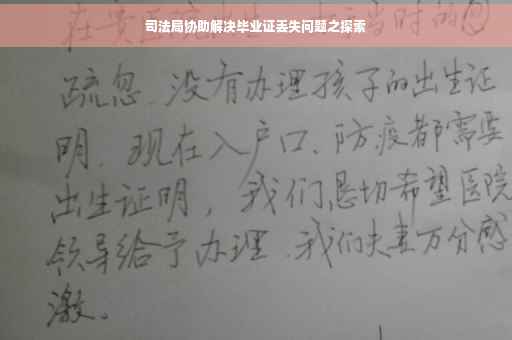 司法局协助解决毕业证丢失问题之探索
在 当时的
疏忽、没有办理孩子的出生证
明、现在入户口、防疫都需要
出生证明，我们恳切希望医院
领导给予办理、我们夫妻万分感
激。